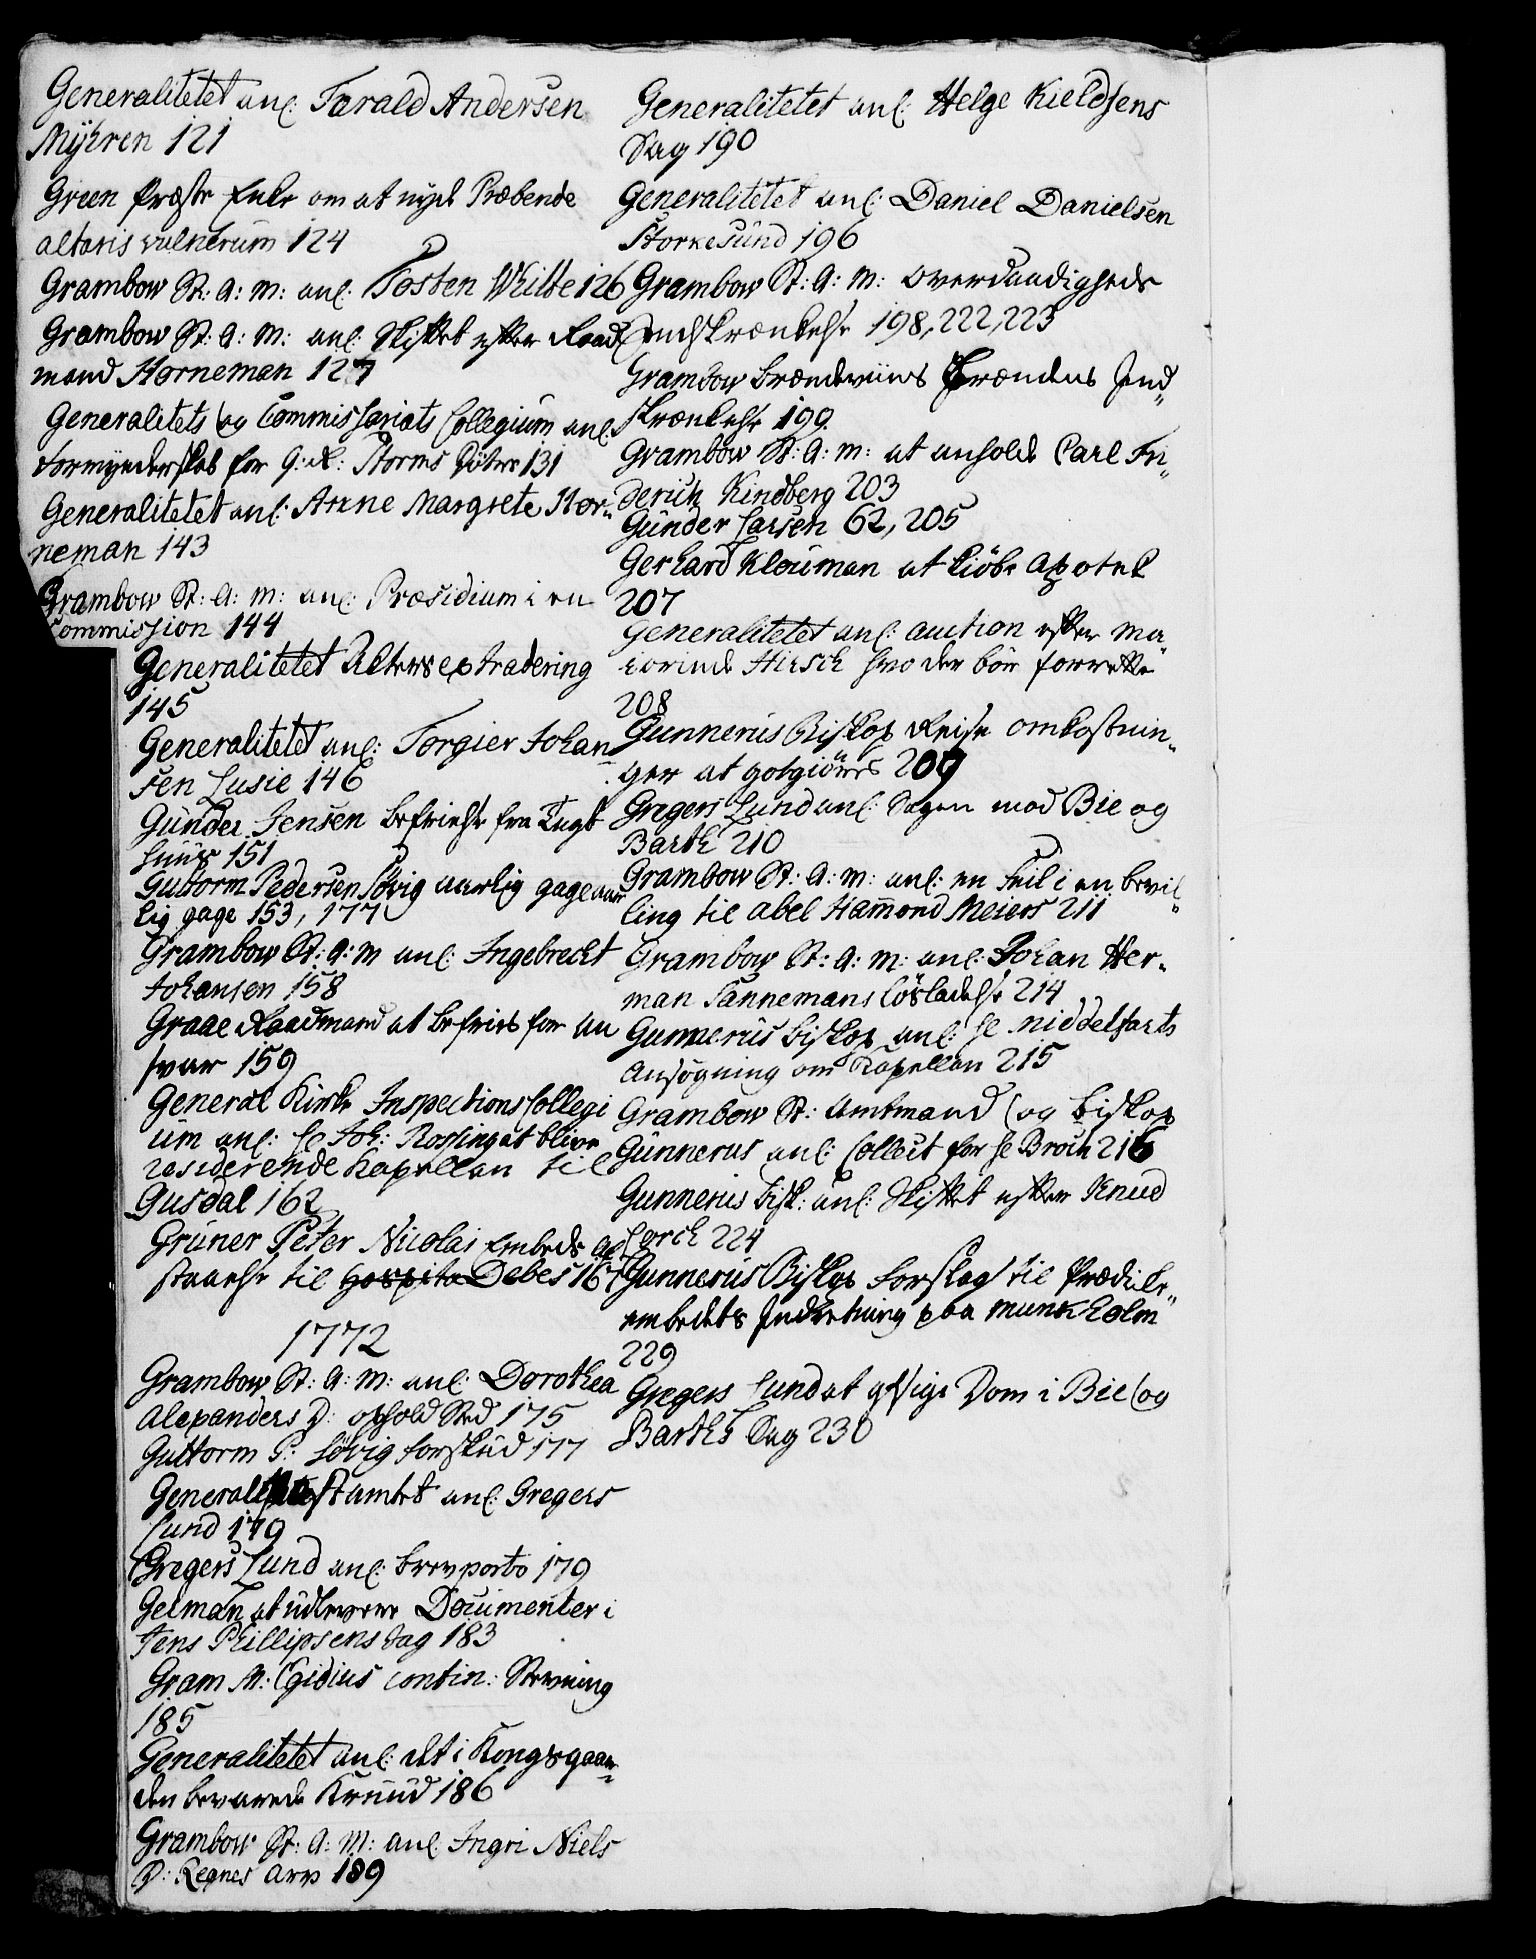 Generalitetet anl: Tarald Andersen
Myhren 121
Green Præste Enke om at nyde Præbende
altaris vulnerum 124
Grambow St: A: M: anl: Tosten Whitte 126
Grambow St: A: M: anl: Skiftet efter Raad
mand Horneman 127
Generalitets og Commissariats Collegium anl:
Formynderskab for G: R: Storms Døtre 131
Generalitetet anl: Anne Margrete Hor„
neman 143
Grambow St: A: M: anl: Præsidium i en
Commission 144
Generalitetet Acters extradering
145
Generalitetet anl: Torgier Johan
sen Lusie 146
Gunder Jensen befrielse fra Tugt
huus 151
Guttorm Pedersen Løvig aarlig gage aar
lig gage 153, 177
Grambow St: A: M anl: Ingebrecht
Johansen 158
Graae Raadmand at befries for an
svar 159
General Kirke Inspections Collegi
um anl: Hr Joh: Rossing at blive
residerende Kapellan til
Gusdal 162
Gruner Peter Nicolai Embeds af
staaelse til Hospita Debes 167
1772
Grambow St: A: M: anl: Dorothea
Alexanders D: ophold Sted 175
Guttorm P: Løvig forskud 177
General Post amtet anl: Gregers
Lund 179
Gregers Lund anl: brevporto 179
Gelman at udlevere Documenter i
Jens Phillipsens Sag 183
Gram M: Egidius contin: Stevning
185
Generalitetet anl: det i Kongsgaar„
den bevarede Kruud 186
Grambow St: A: M: anl: Ingri Niels
D: Regnes Arv 189
Generalitetet anl: Helge Kieldsens
Sag 190
Generalitetet anl: Daniel Danielsen
Storkesund 196
Grambow St: A: M: Overdaadigheds
Indskrænkelse 198, 222, 223
Grambow brændeviins Brændens Ind„
skrænkelse 199
Grambow St: A: M: at anholde Carl Fri„
derich Kindberg 203
Gunder Larsen 62, 205
Gerhard Klouman at kiöbe Apotek
207
Generalitetet anl: auction efter Ma„
jorinde Hirsch hvo der bör forrette
208
Gunnerus Biskop Reise omkostnin„
ger at gotgiöres 209
Gregers Lund anl: Sagen mod Bie og
Barth 210
Grambow St: A: M: anl: en Feil i en bevil„
ling til Abel Hammond Meiers 211
Grambow St: A: M: anl: Johan Her„
man Tannemans Lösladelse 214
Gunnerus biskop anl: Hr Middelfarts
Ansögning om Kapellan 215
Grambow St: Amtmand og biskop
Gunnerus anl: Collect for Hr Broch 216
Gunnerus bisk: anl: Skiftet efter Knud
Lorck 224
Gunnerus Biskop Forslag til Prædike„
embedets Indretning paa Munkholm
229
Gregers Lund at afsige Dom i Bie og
Barths Sag 230